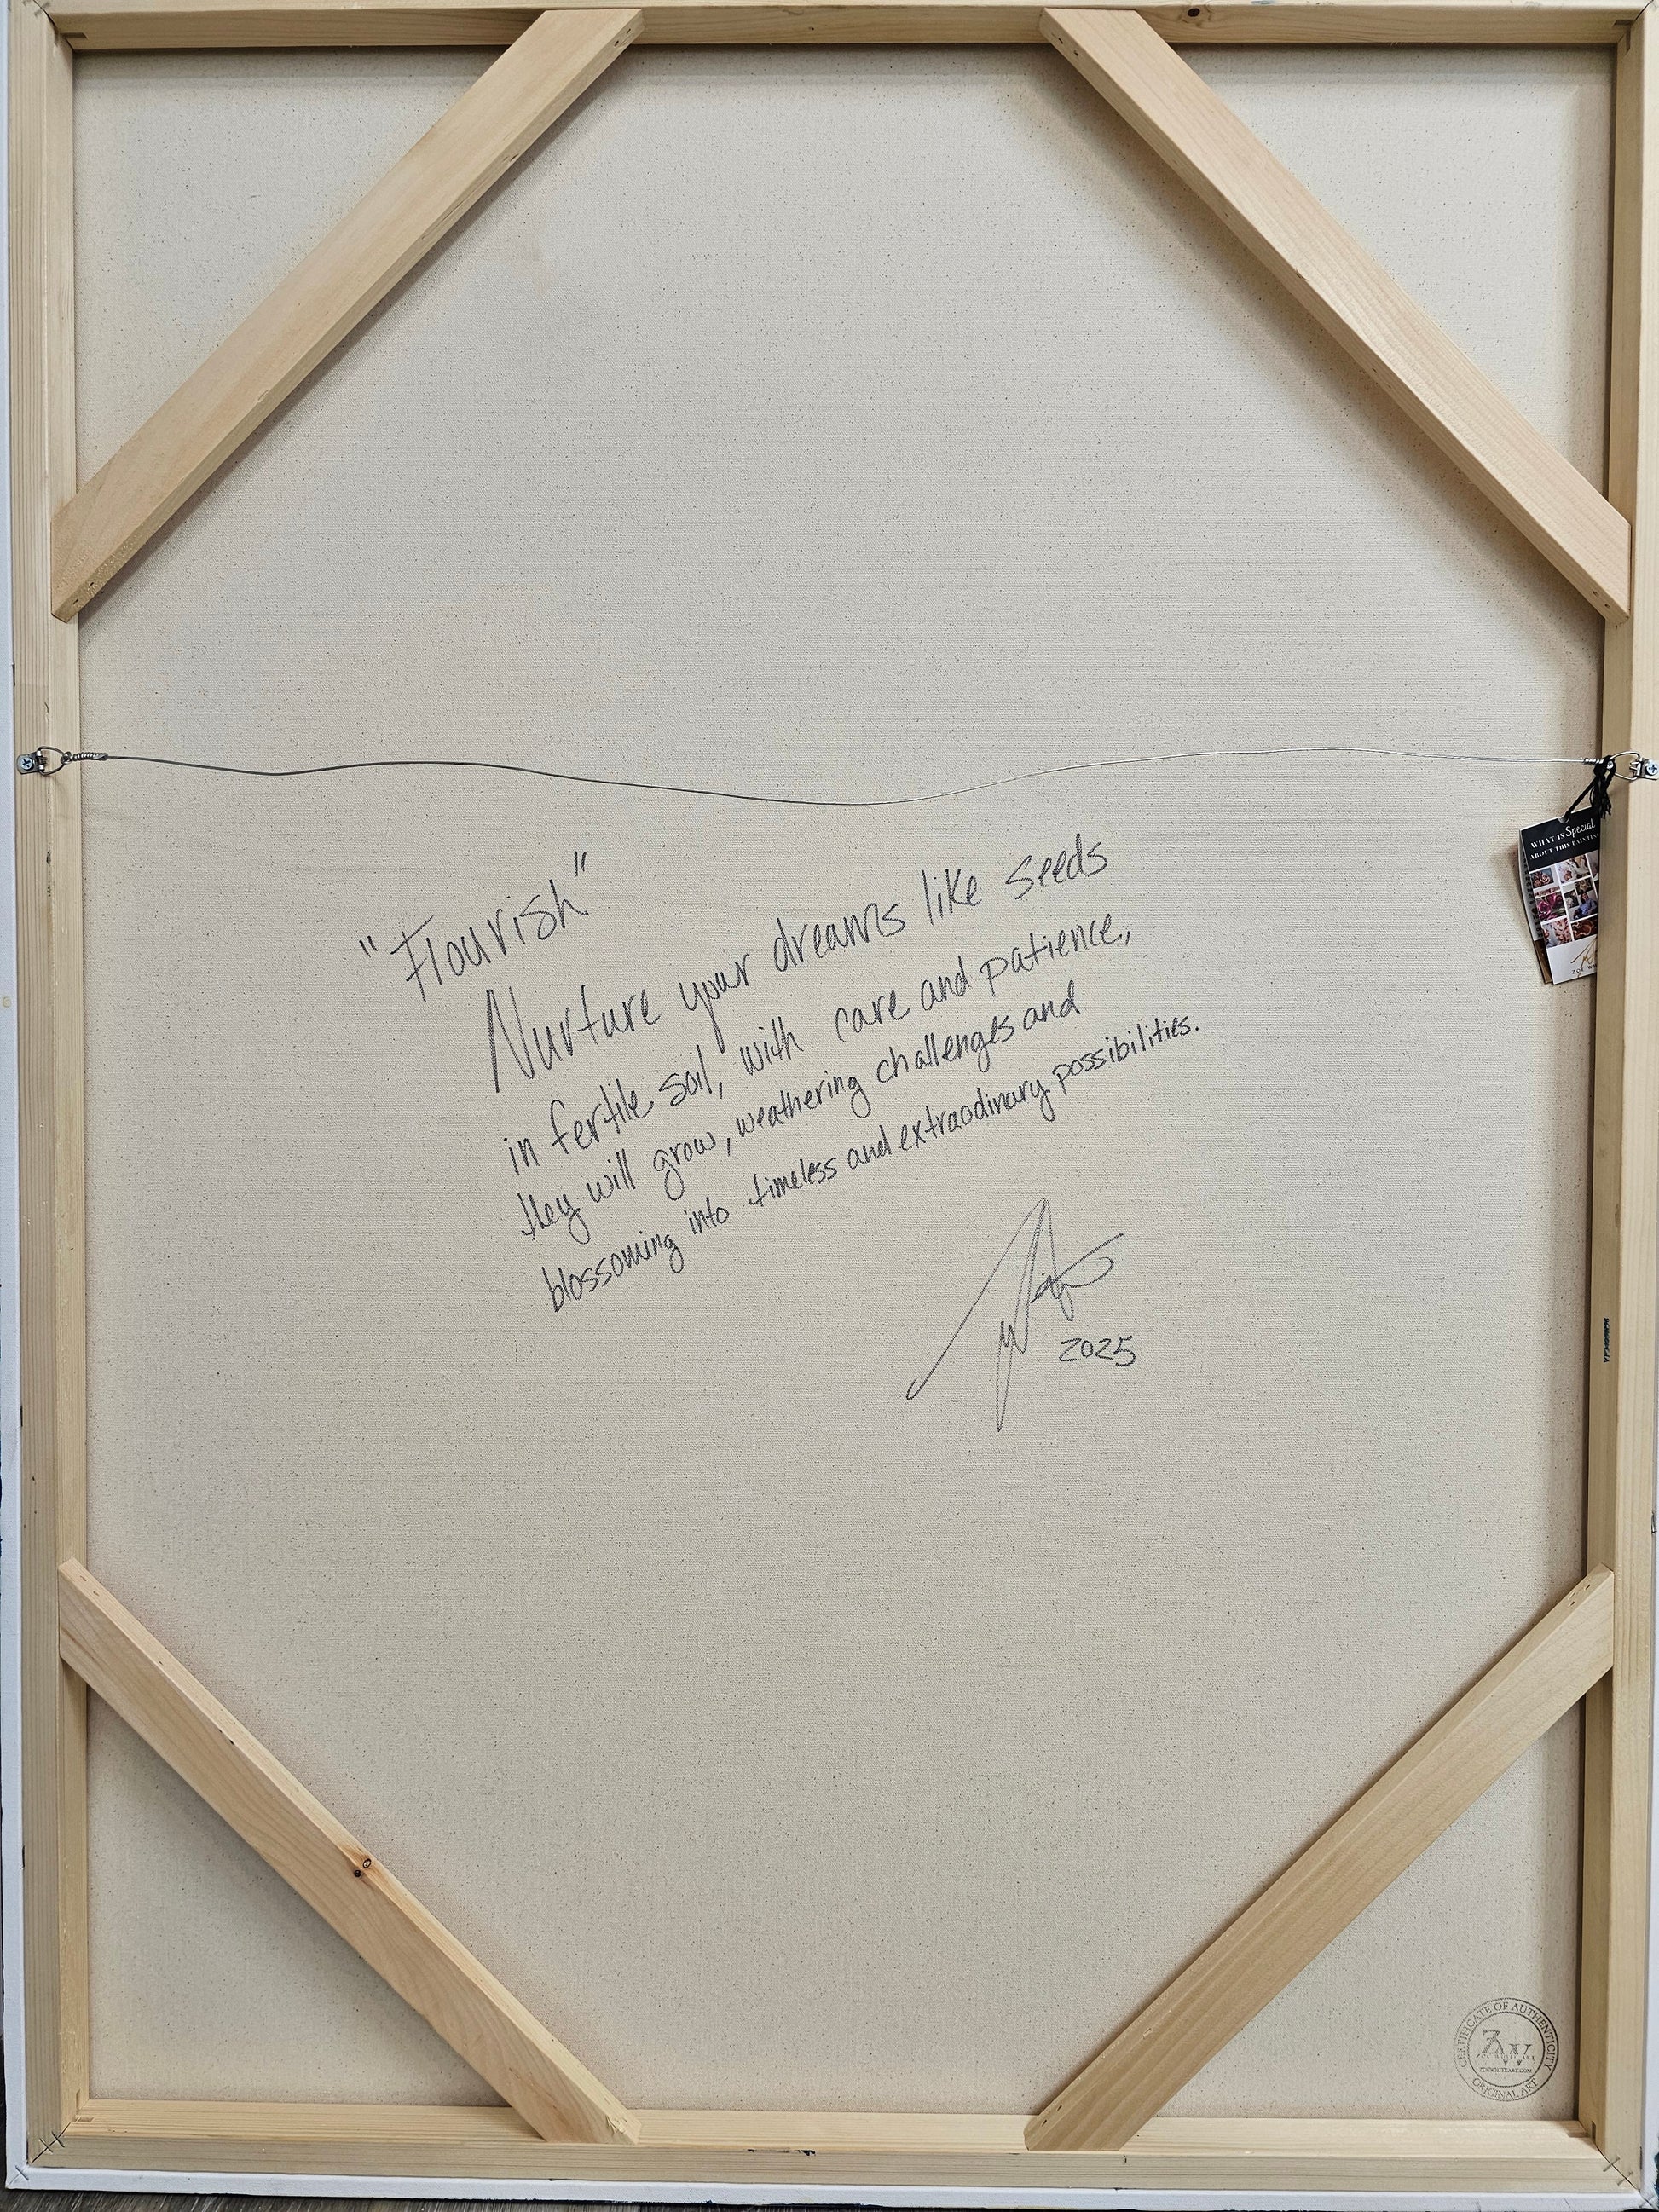 WHAT IS Special
ABOUT THIS PAINTIN
"Flourish"
Nurture your dreams like seeds
in fertile soil, with care and patience,
they will grow, weathering challenges and
blossoming into timeless and extraodinary possibilities.
2025
CERTIFICATE OF AUTHENTICITY
ZW
ZOEWHITEART.COM
ORIGINAL ART